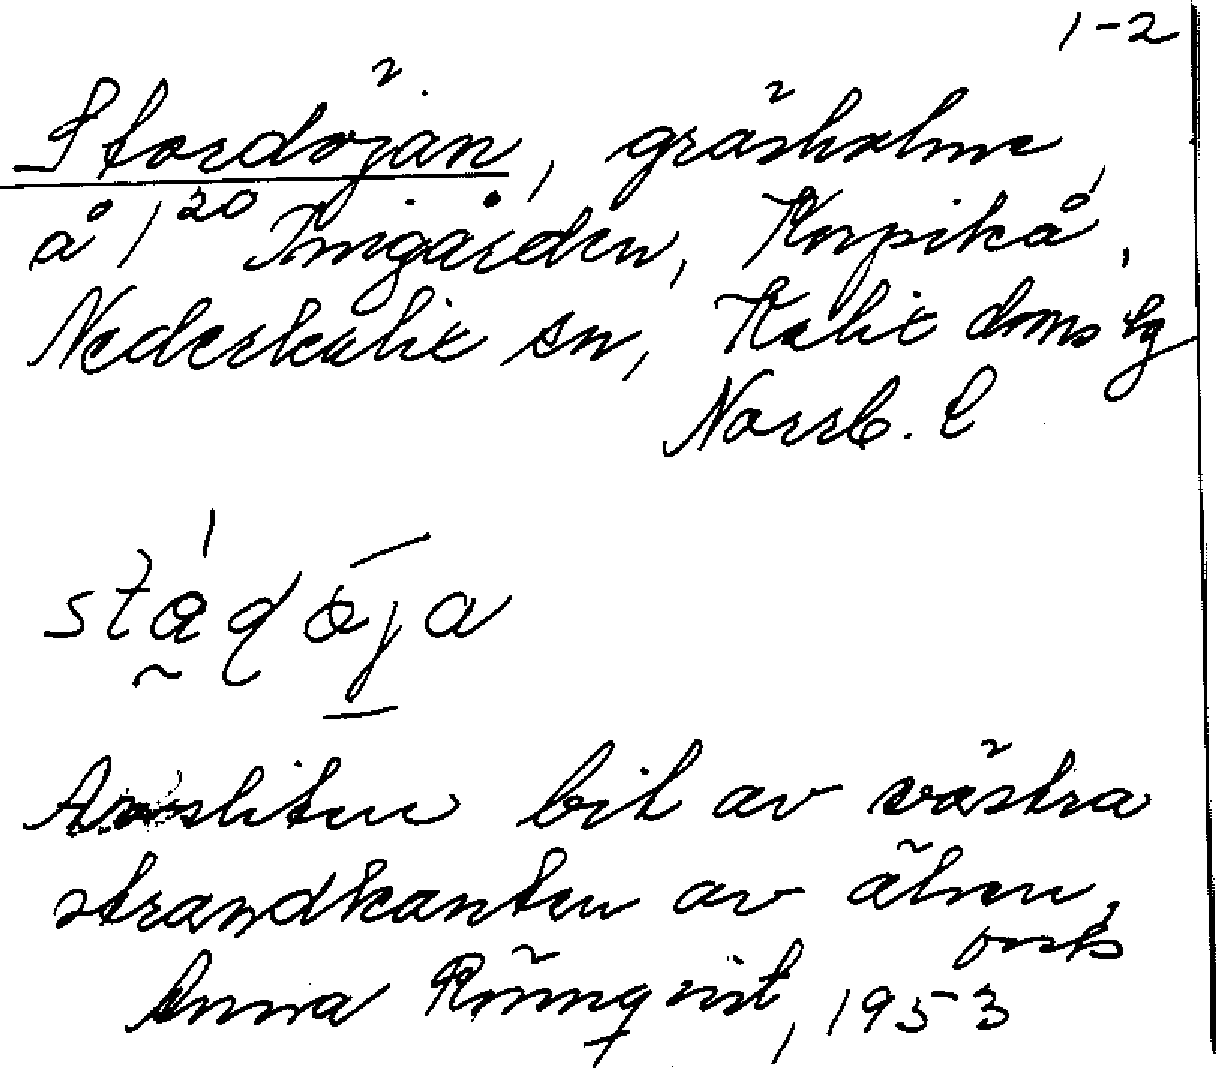 1-2
Stordöjan, gräsholme
å 1²⁰ Innigården, Korpikå,
Nederkalix sn, Kalix doms lg
Norrb. l
Avsliten bit av västra
strandkanten av älven,
Anna Rönnqvist, 1953